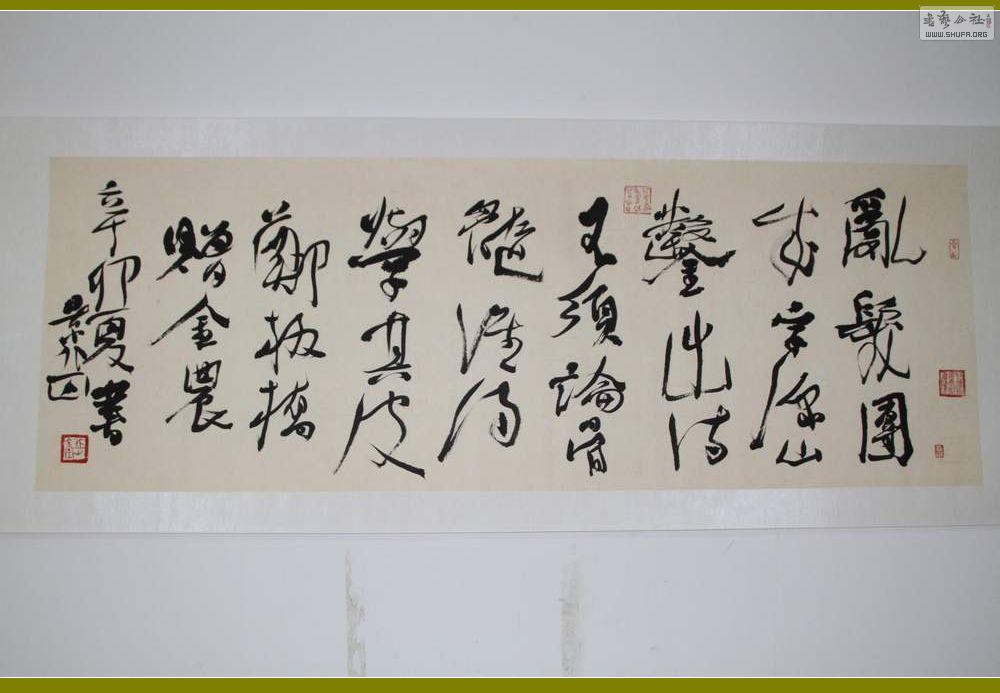 亂髮團
成字深山
鑿出詩
不須論骨
髓誰得
學其皮
鄭板橋
贈金農
辛卯夏書
書藝公社
WWW.SHUFA.ORG